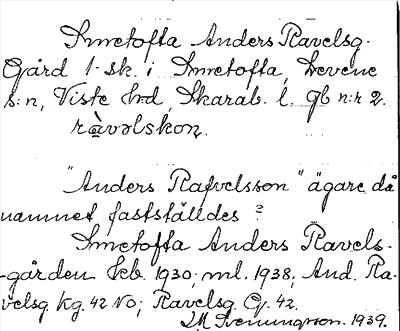 Smetofta Anders Ravelsg.
Gård 1 sk. i Smetofta, Levene
s:n, Viste h:d, Skarab. l. gb n:r 2.
ràvəlskon.
"Anders Rafvelsson" ägare då
namnet fastställdes?
Smetofta Anders Ravels-
-gården kb. 1930; ml. 1938, And. Ra-
velsg. Kg. 42 NO; Ravelsg. Cj. 42.
IM Svenungsson. 1939.